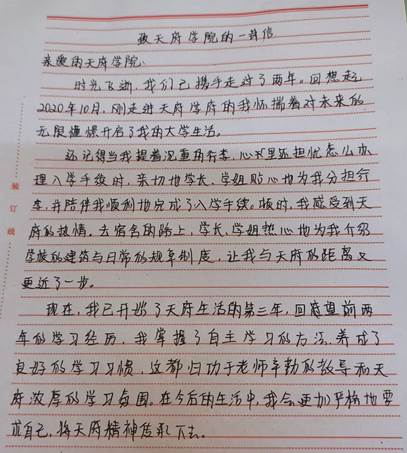 致天府学院的一封信
亲爱的天府学院:
时光飞逝,我们已携手走过了两年。回想起
2020年10月,刚走进天府学府的我怀揣着对未来的
无限憧憬开启了我的大学生活。
还记得当我提着沉重的行李,心里还担忧怎么办
理入学手续时,亲切地学长、学姐贴心地为我分担行
李,并陪伴我顺利地完成了入学手续。顿时,我感受到天
府的热情。去宿舍的路上,学长、学姐热心地为我介绍
学校的建筑与日常的规章制度,让我与天府的距离又
更近了一步。
现在,我已开始了天府生活的第三年,回首望前两
年的学习经历,我掌握了自主学习的方法,养成了
良好的学习习惯,这都归功于老师辛勤的教导和天
府浓厚的学习氛围。在今后的生活中,我会更加严格地要
求自己,将天府精神传承下去。
装订线